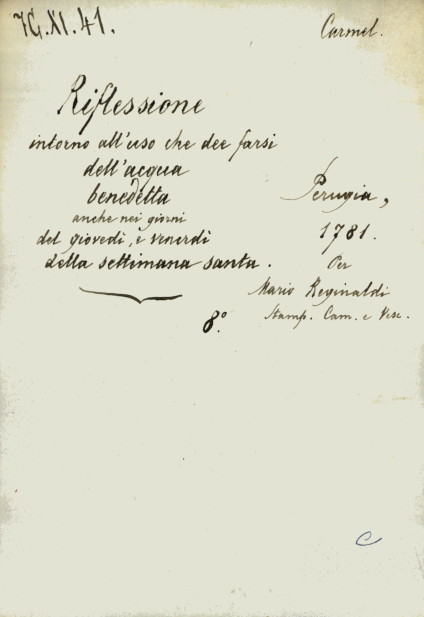 7G.XI.41.
Carmel.
Riflessione
intorno all'uso che dee farsi
dell'acqua
benedetta
anche nei giorni
del giovedì, e venerdì
della settimana santa.
Perugia,
1781.
Per
Mario Reginaldi
Stamp. Cam. e Vesc.
8.º
C